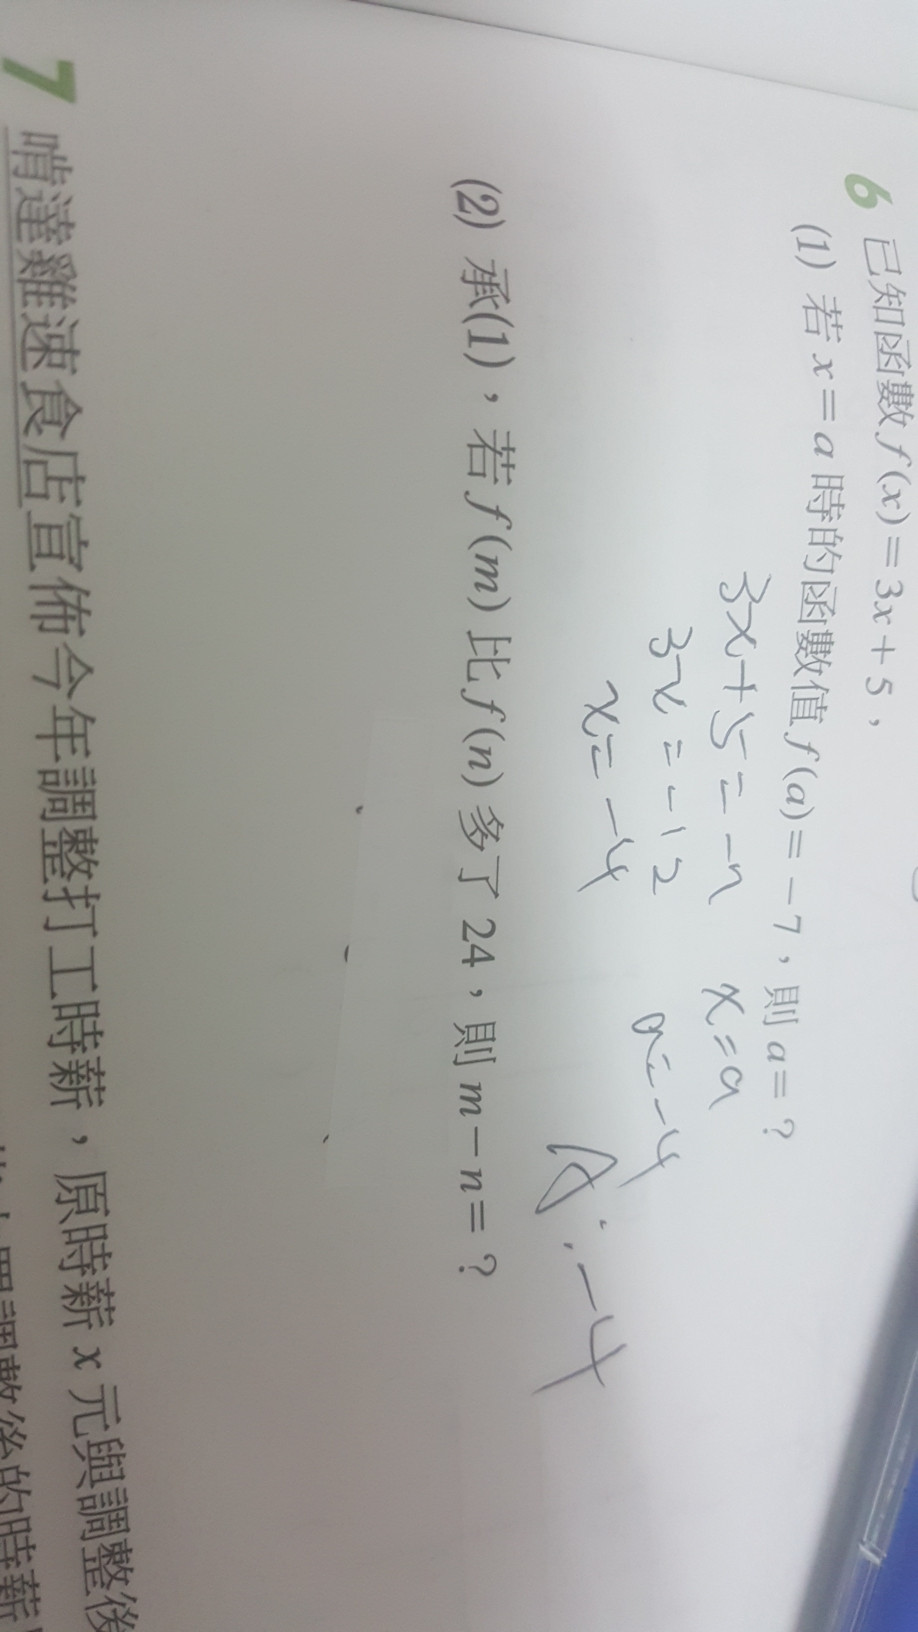 6 已知函數 f(x)=3x+5，
(1) 若 x=a 時的函數值 f(a)=-7，則 a=？
3x+5=-7 x=a
3x=-12 a=-4
x=-4
A:-4
(2) 承(1)，若 f(m) 比 f(n) 多了 24，則 m-n=？
7 啃達雞速食店宣佈今年調整打工時薪，原時薪 x 元與調整後
調整後的時薪